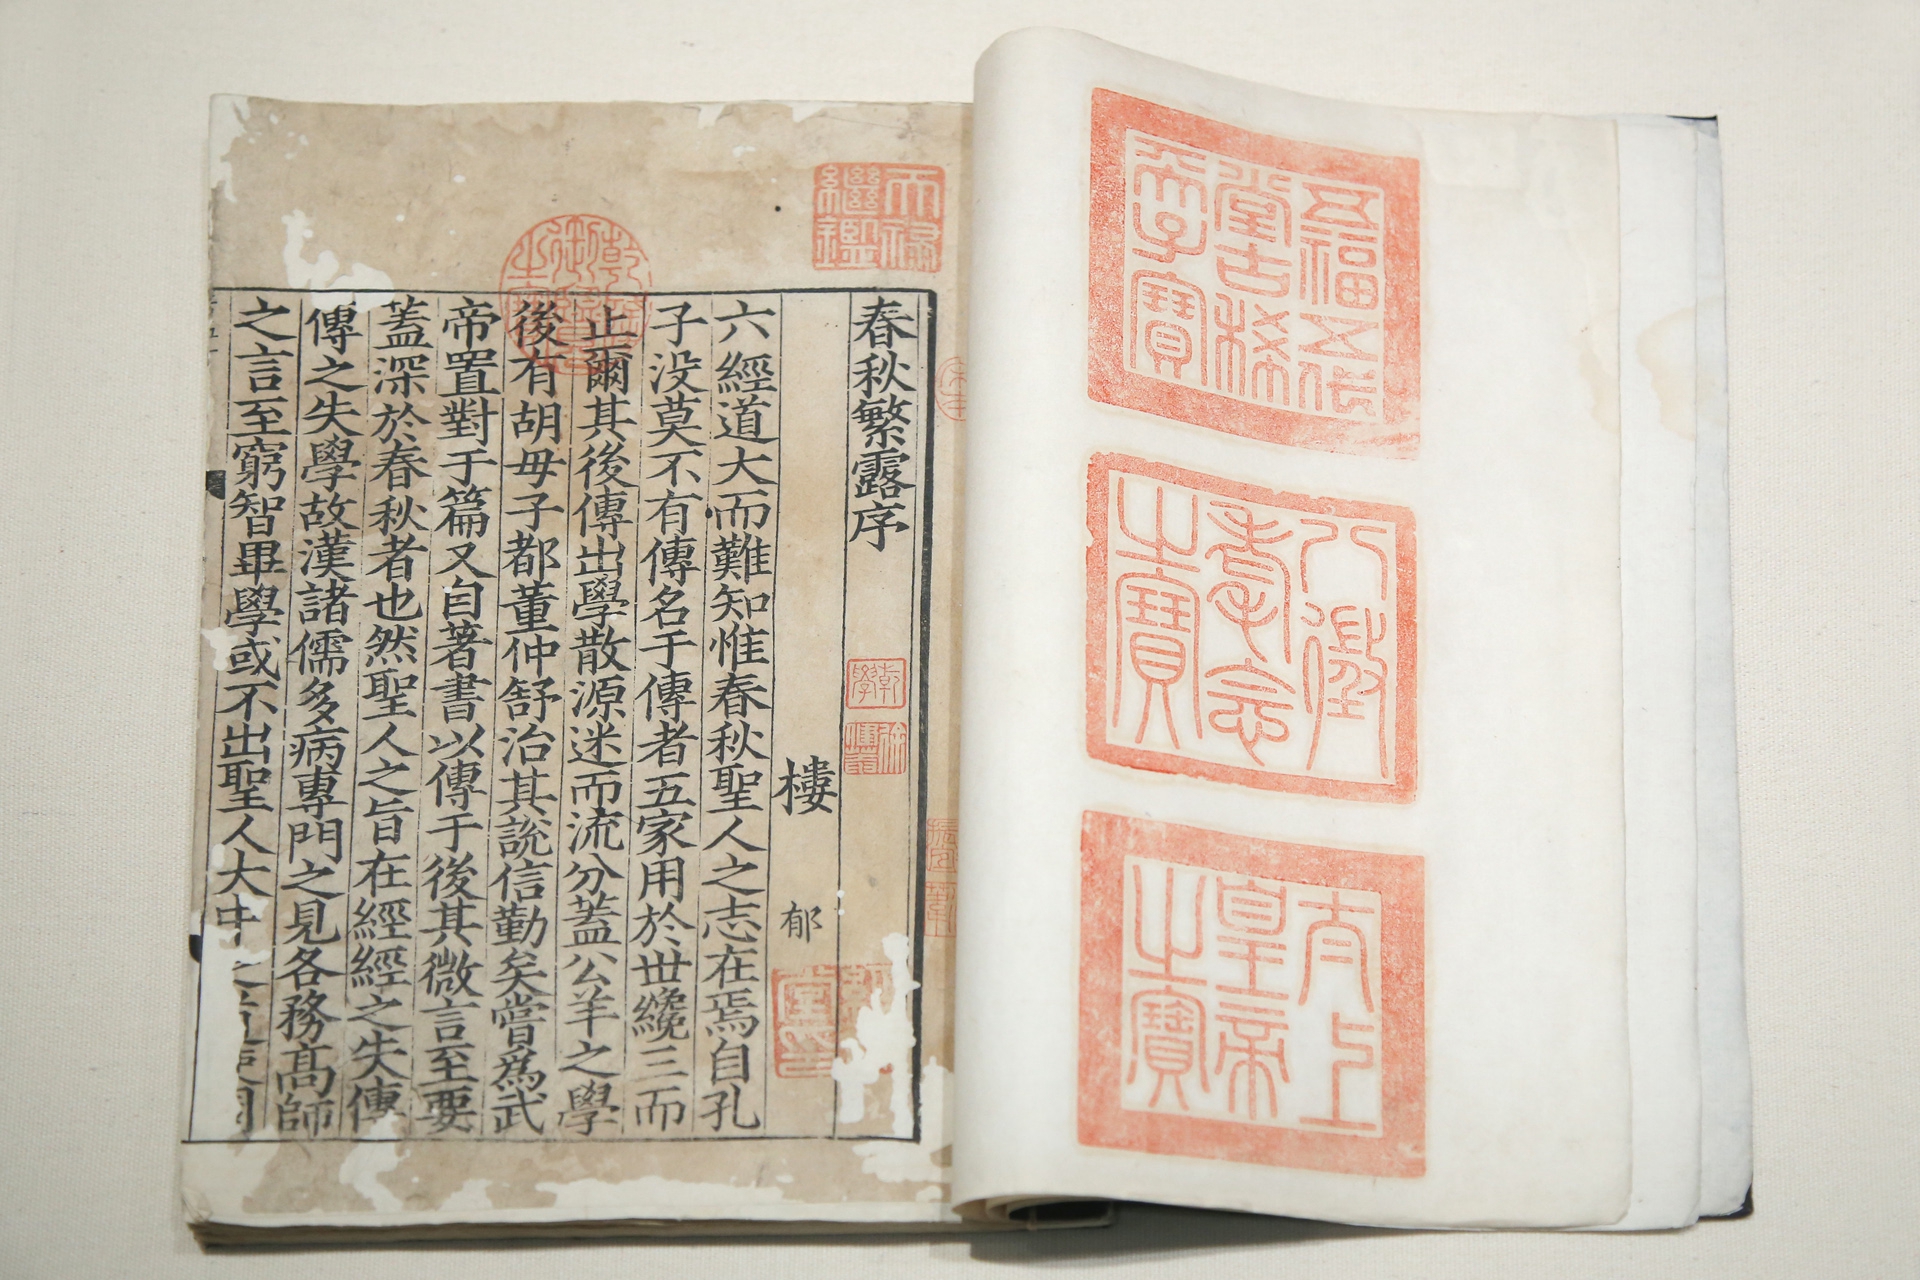 五福五代
堂古稀
天子寶
八徵
耄念
之寶
太上
皇帝
之寶
天祿
繼鑑
乾隆
御覽
之寶
乾學
徐健菴
春秋繁露序
樓郁
六經道大而難知惟春秋聖人之志在焉自孔
子没莫不有傳名于傳者五家用於世纔三而
止爾其後傳出學散源迷而流分蓋公羊之學
後有胡毋子都董仲舒治其説信勤矣嘗爲武
帝置對于篇又自著書以傳于後其微言至要
蓋深於春秋者也然聖人之旨在經經之失傳
傳之失學故漢諸儒多病專門之見各務髙師
之言至窮智畢學或不出聖人大中之